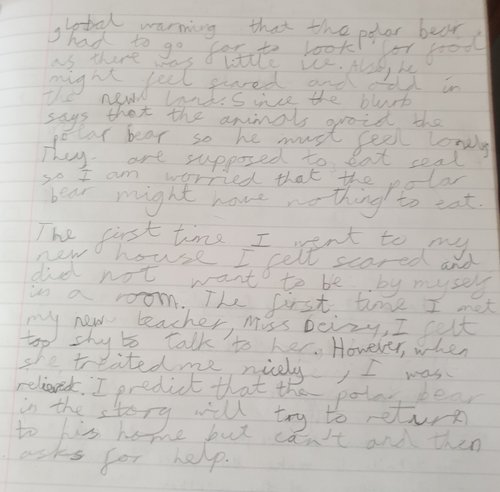 global warming that the polar bear
had to go far to look for food
as there was little ice. Also, he
might feel scared and odd in
the new land. Since the blurb
says that the animals avoid the
polar bear so he must feel lonely
They are supposed to eat seal
so I am worried that the polar
bear might have nothing to eat.
The first time I went to my
new house I felt scared and
did not want to be by myself
in a room. The first time I met
my new teacher, Miss Deizy, I felt
too shy to talk to her. However, when
she treated me nicely, I was
relieved. I predict that the polar bear
in the story will try to return
to his home but can't and then
asks for help.